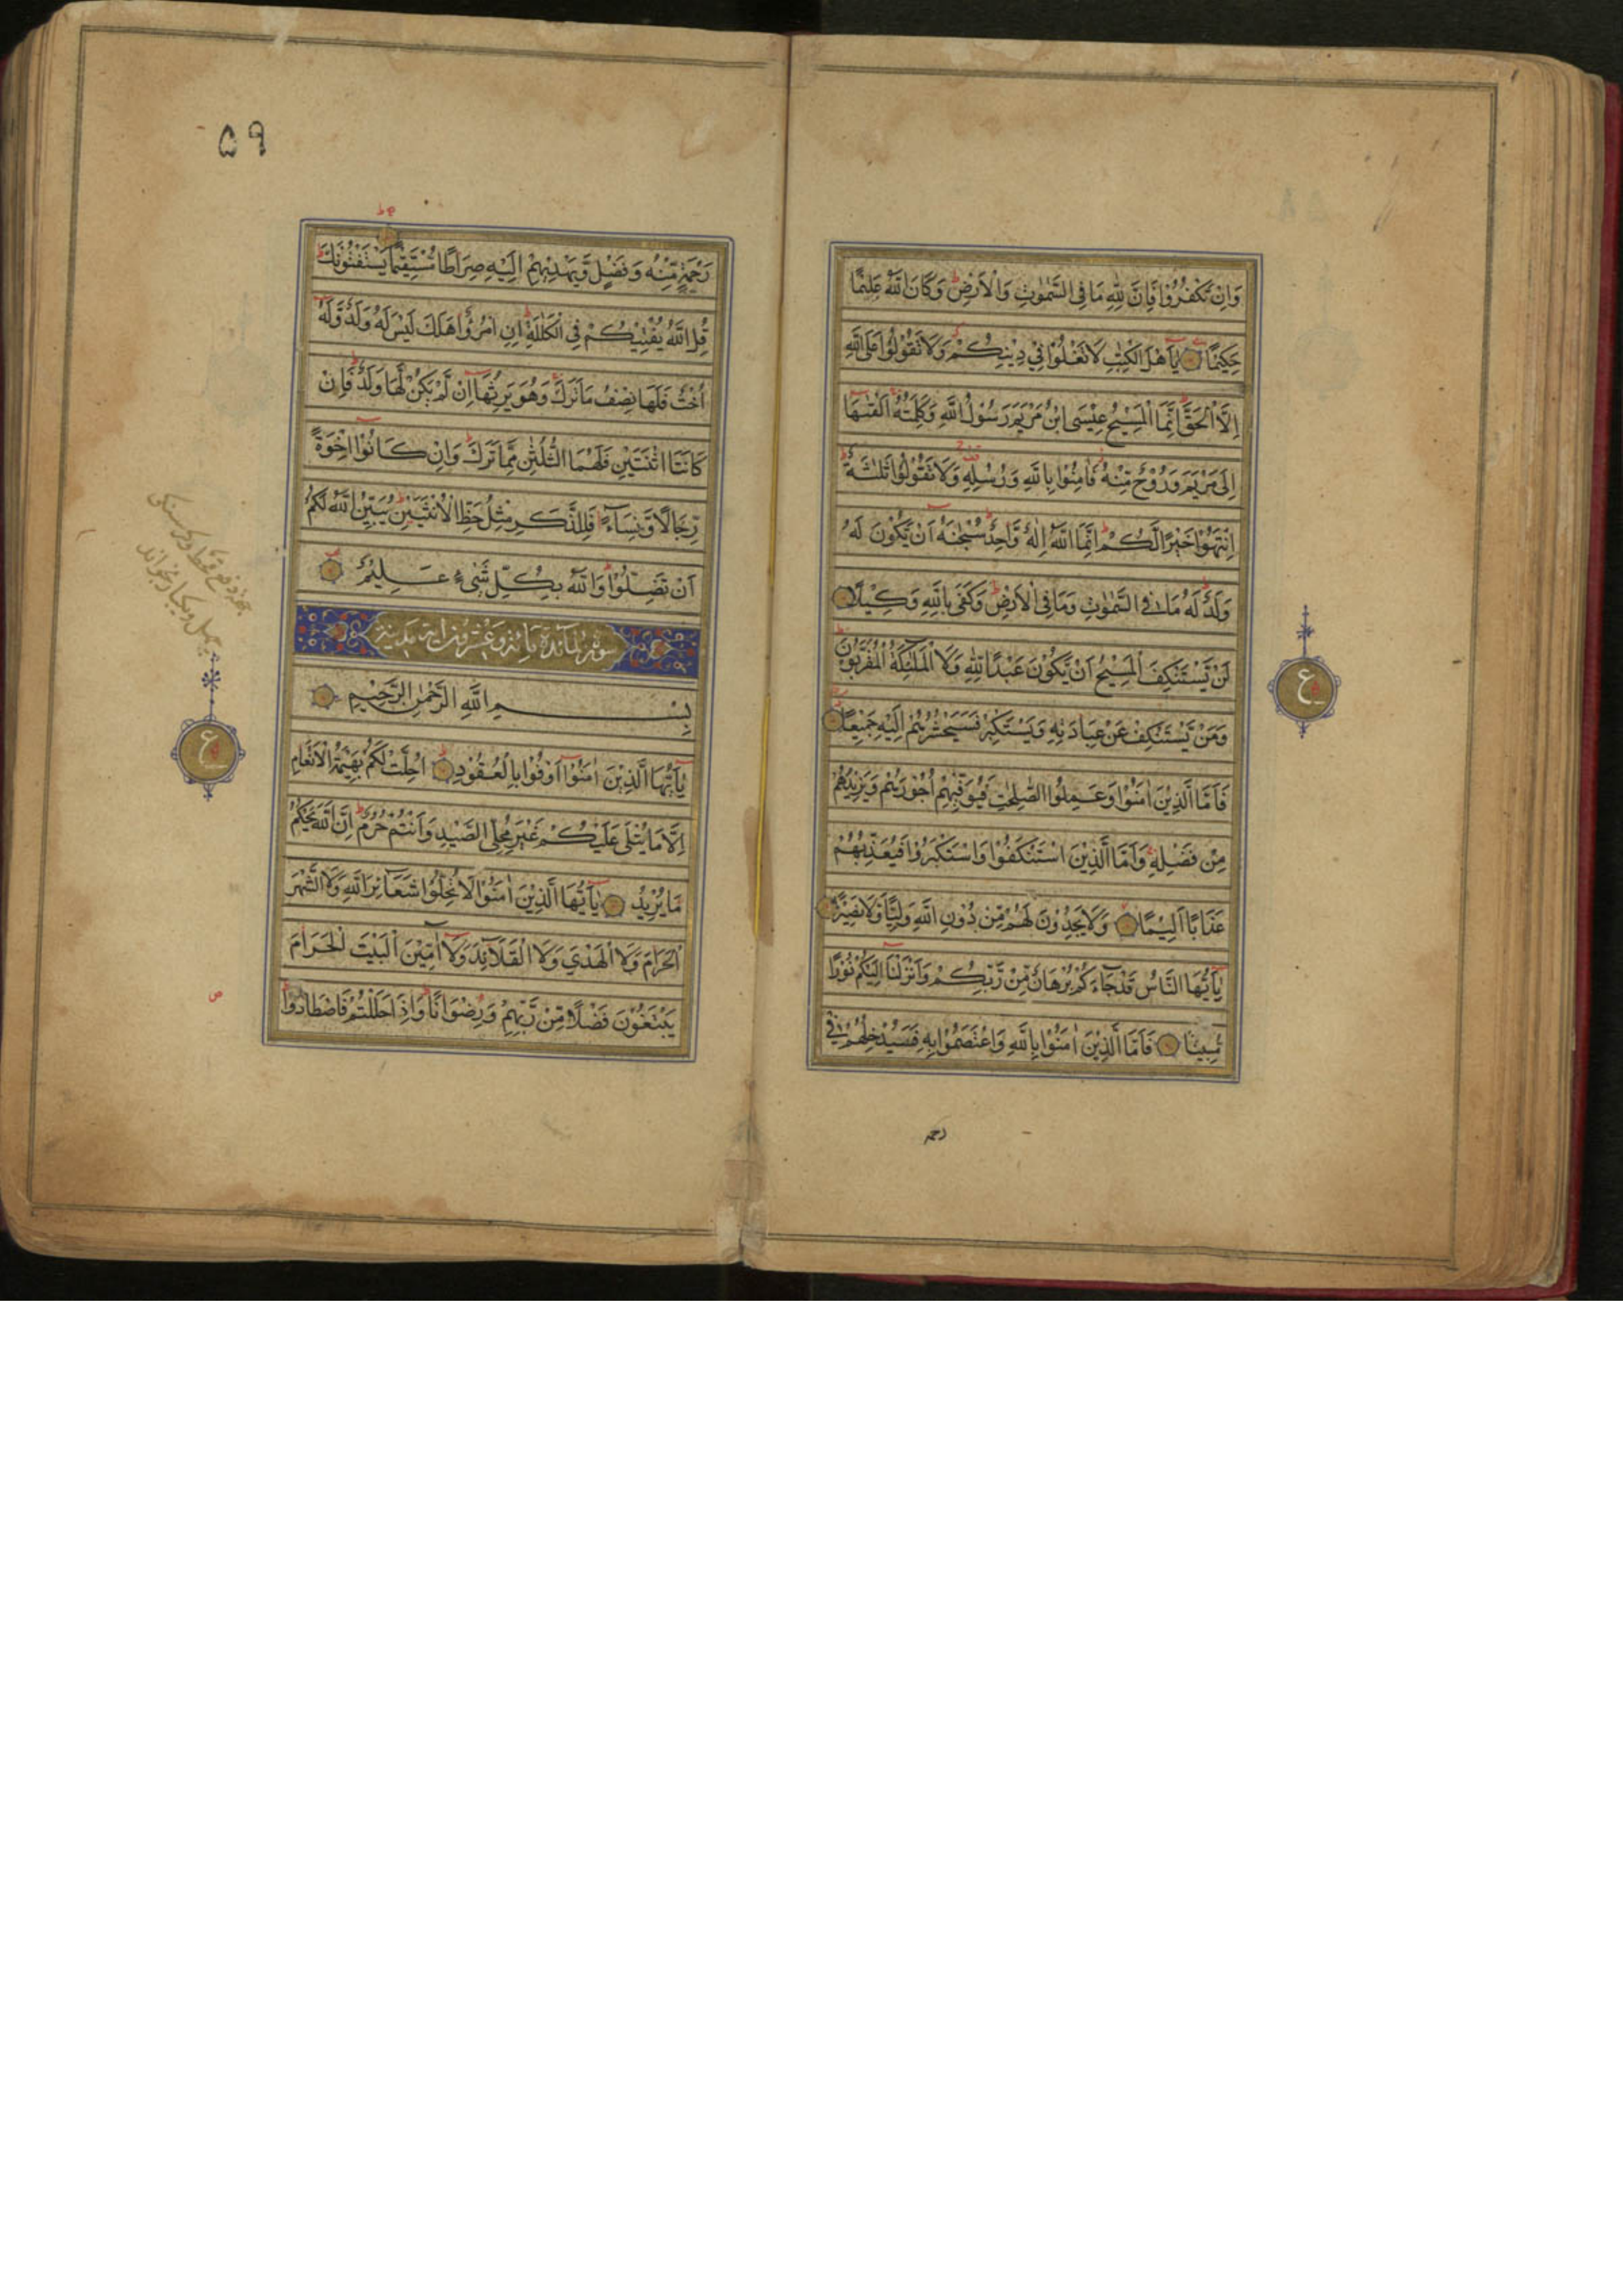 وَاِنْ تَكْفُرُوْا فَاِنَّ لِلّٰهِ مَا فِى السَّمٰوٰتِ وَالْاَرْضِ ط وَكَانَ اللّٰهُ عَلِيْمًا
حَكِيْمًا يٰٓاَهْلَ الْكِتٰبِ لَا تَغْلُوْا فِيْ دِيْنِكُمْ وَلَا تَقُوْلُوْا عَلَى اللّٰهِ
اِلَّا الْحَقَّ ط اِنَّمَا الْمَسِيْحُ عِيْسَى ابْنُ مَرْيَمَ رَسُوْلُ اللّٰهِ وَكَلِمَتُهٗ اَلْقٰىهَا
اِلٰى مَرْيَمَ وَرُوْحٌ مِّنْهُ فَاٰمِنُوْا بِاللّٰهِ وَرُسُلِهٖ وَلَا تَقُوْلُوْا ثَلٰثَةٌ ط
اِنْتَهُوْا خَيْرًا لَّكُمْ ط اِنَّمَا اللّٰهُ اِلٰهٌ وَّاحِدٌ ط سُبْحٰنَهٗٓ اَنْ يَّكُوْنَ لَهٗ
وَلَدٌ لَهٗ مَا فِى السَّمٰوٰتِ وَمَا فِى الْاَرْضِ ط وَكَفٰى بِاللّٰهِ وَكِيْلًا
لَنْ يَّسْتَنْكِفَ الْمَسِيْحُ اَنْ يَّكُوْنَ عَبْدًا لِلّٰهِ وَلَا الْمَلٰٓئِكَةُ الْمُقَرَّبُوْنَ ط
وَمَنْ يَّسْتَنْكِفْ عَنْ عِبَادَتِهٖ وَيَسْتَكْبِرْ فَسَيَحْشُرُهُمْ اِلَيْهِ جَمِيْعًا
فَاَمَّا الَّذِيْنَ اٰمَنُوْا وَعَمِلُوا الصّٰلِحٰتِ فَيُوَفِّيْهِمْ اُجُوْرَهُمْ وَيَزِيْدُهُمْ
مِنْ فَضْلِهٖ وَاَمَّا الَّذِيْنَ اسْتَنْكَفُوْا وَاسْتَكْبَرُوْا فَيُعَذِّبُهُمْ
عَذَابًا اَلِيْمًا وَلَا يَجِدُوْنَ لَهُمْ مِّنْ دُوْنِ اللّٰهِ وَلِيًّا وَّلَا نَصِيْرًا
يٰٓاَيُّهَا النَّاسُ قَدْ جَآءَكُمْ بُرْهَانٌ مِّنْ رَّبِّكُمْ وَاَنْزَلْنَآ اِلَيْكُمْ نُوْرًا
مُّبِيْنًا فَاَمَّا الَّذِيْنَ اٰمَنُوْا بِاللّٰهِ وَاعْتَصَمُوْا بِهٖ فَسَيُدْخِلُهُمْ فِيْ
رحمة
ع
۵۹
رَحْمَةٍ مِّنْهُ وَفَضْلٍ وَّيَهْدِيْهِمْ اِلَيْهِ صِرَاطًا مُّسْتَقِيْمًا يَسْتَفْتُوْنَكَ ط
قُلِ اللّٰهُ يُفْتِيْكُمْ فِى الْكَلٰلَةِ ط اِنِ امْرُؤٌا هَلَكَ لَيْسَ لَهٗ وَلَدٌ وَّلَهٗٓ
اُخْتٌ فَلَهَا نِصْفُ مَا تَرَكَ وَهُوَ يَرِثُهَآ اِنْ لَّمْ يَكُنْ لَّهَا وَلَدٌ ط فَاِنْ
كَانَتَا اثْنَتَيْنِ فَلَهُمَا الثُّلُثٰنِ مِمَّا تَرَكَ ط وَاِنْ كَانُوْٓا اِخْوَةً
رِّجَالًا وَّنِسَآءً فَلِلذَّكَرِ مِثْلُ حَظِّ الْاُنْثَيَيْنِ ط يُبَيِّنُ اللّٰهُ لَكُمْ
اَنْ تَضِلُّوْا ط وَاللّٰهُ بِكُلِّ شَىْءٍ عَلِيْمٌ
سورة المائدة مائة وعشرون اية مدنية
بِسْمِ اللّٰهِ الرَّحْمٰنِ الرَّحِيْمِ
يٰٓاَيُّهَا الَّذِيْنَ اٰمَنُوْٓا اَوْفُوْا بِالْعُقُوْدِ ط اُحِلَّتْ لَكُمْ بَهِيْمَةُ الْاَنْعَامِ
اِلَّا مَا يُتْلٰى عَلَيْكُمْ غَيْرَ مُحِلِّى الصَّيْدِ وَاَنْتُمْ حُرُمٌ ط اِنَّ اللّٰهَ يَحْكُمُ
مَا يُرِيْدُ يٰٓاَيُّهَا الَّذِيْنَ اٰمَنُوْا لَا تُحِلُّوْا شَعَآئِرَ اللّٰهِ وَلَا الشَّهْرَ
الْحَرَامَ وَلَا الْهَدْيَ وَلَا الْقَلَآئِدَ وَلَآ اٰمِّيْنَ الْبَيْتَ الْحَرَامَ
يَبْتَغُوْنَ فَضْلًا مِّنْ رَّبِّهِمْ وَرِضْوَانًا ط وَاِذَا حَلَلْتُمْ فَاصْطَادُوْا ط
ع